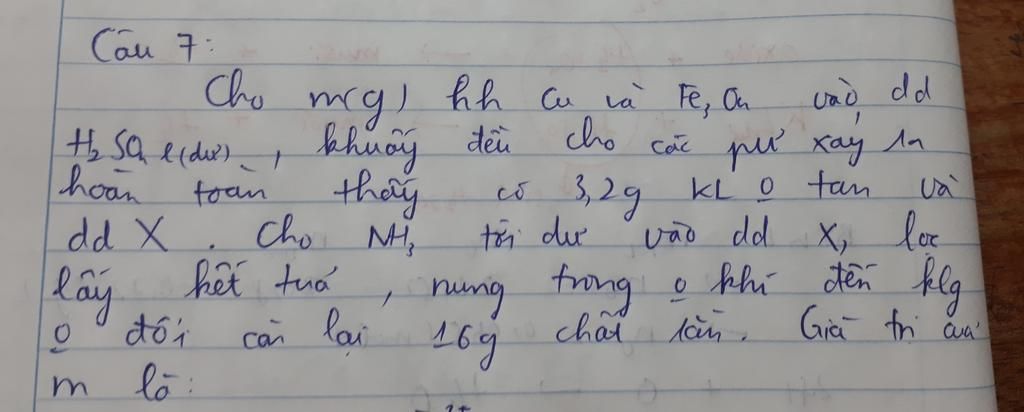 Câu 7:
Cho m(g) hh Cu và Fe₃O₄ vào dd
H₂SO₄ l(dư), khuấy đều cho các pư xảy ra
hoàn toàn thấy có 3,2g KL o tan và
dd X. Cho NH₃ tới dư vào dd X, lọc
lấy kết tuả, nung trong o khí đến klg
o đổi còn lại 16g chất rắn. Giá trị cuả
m là: